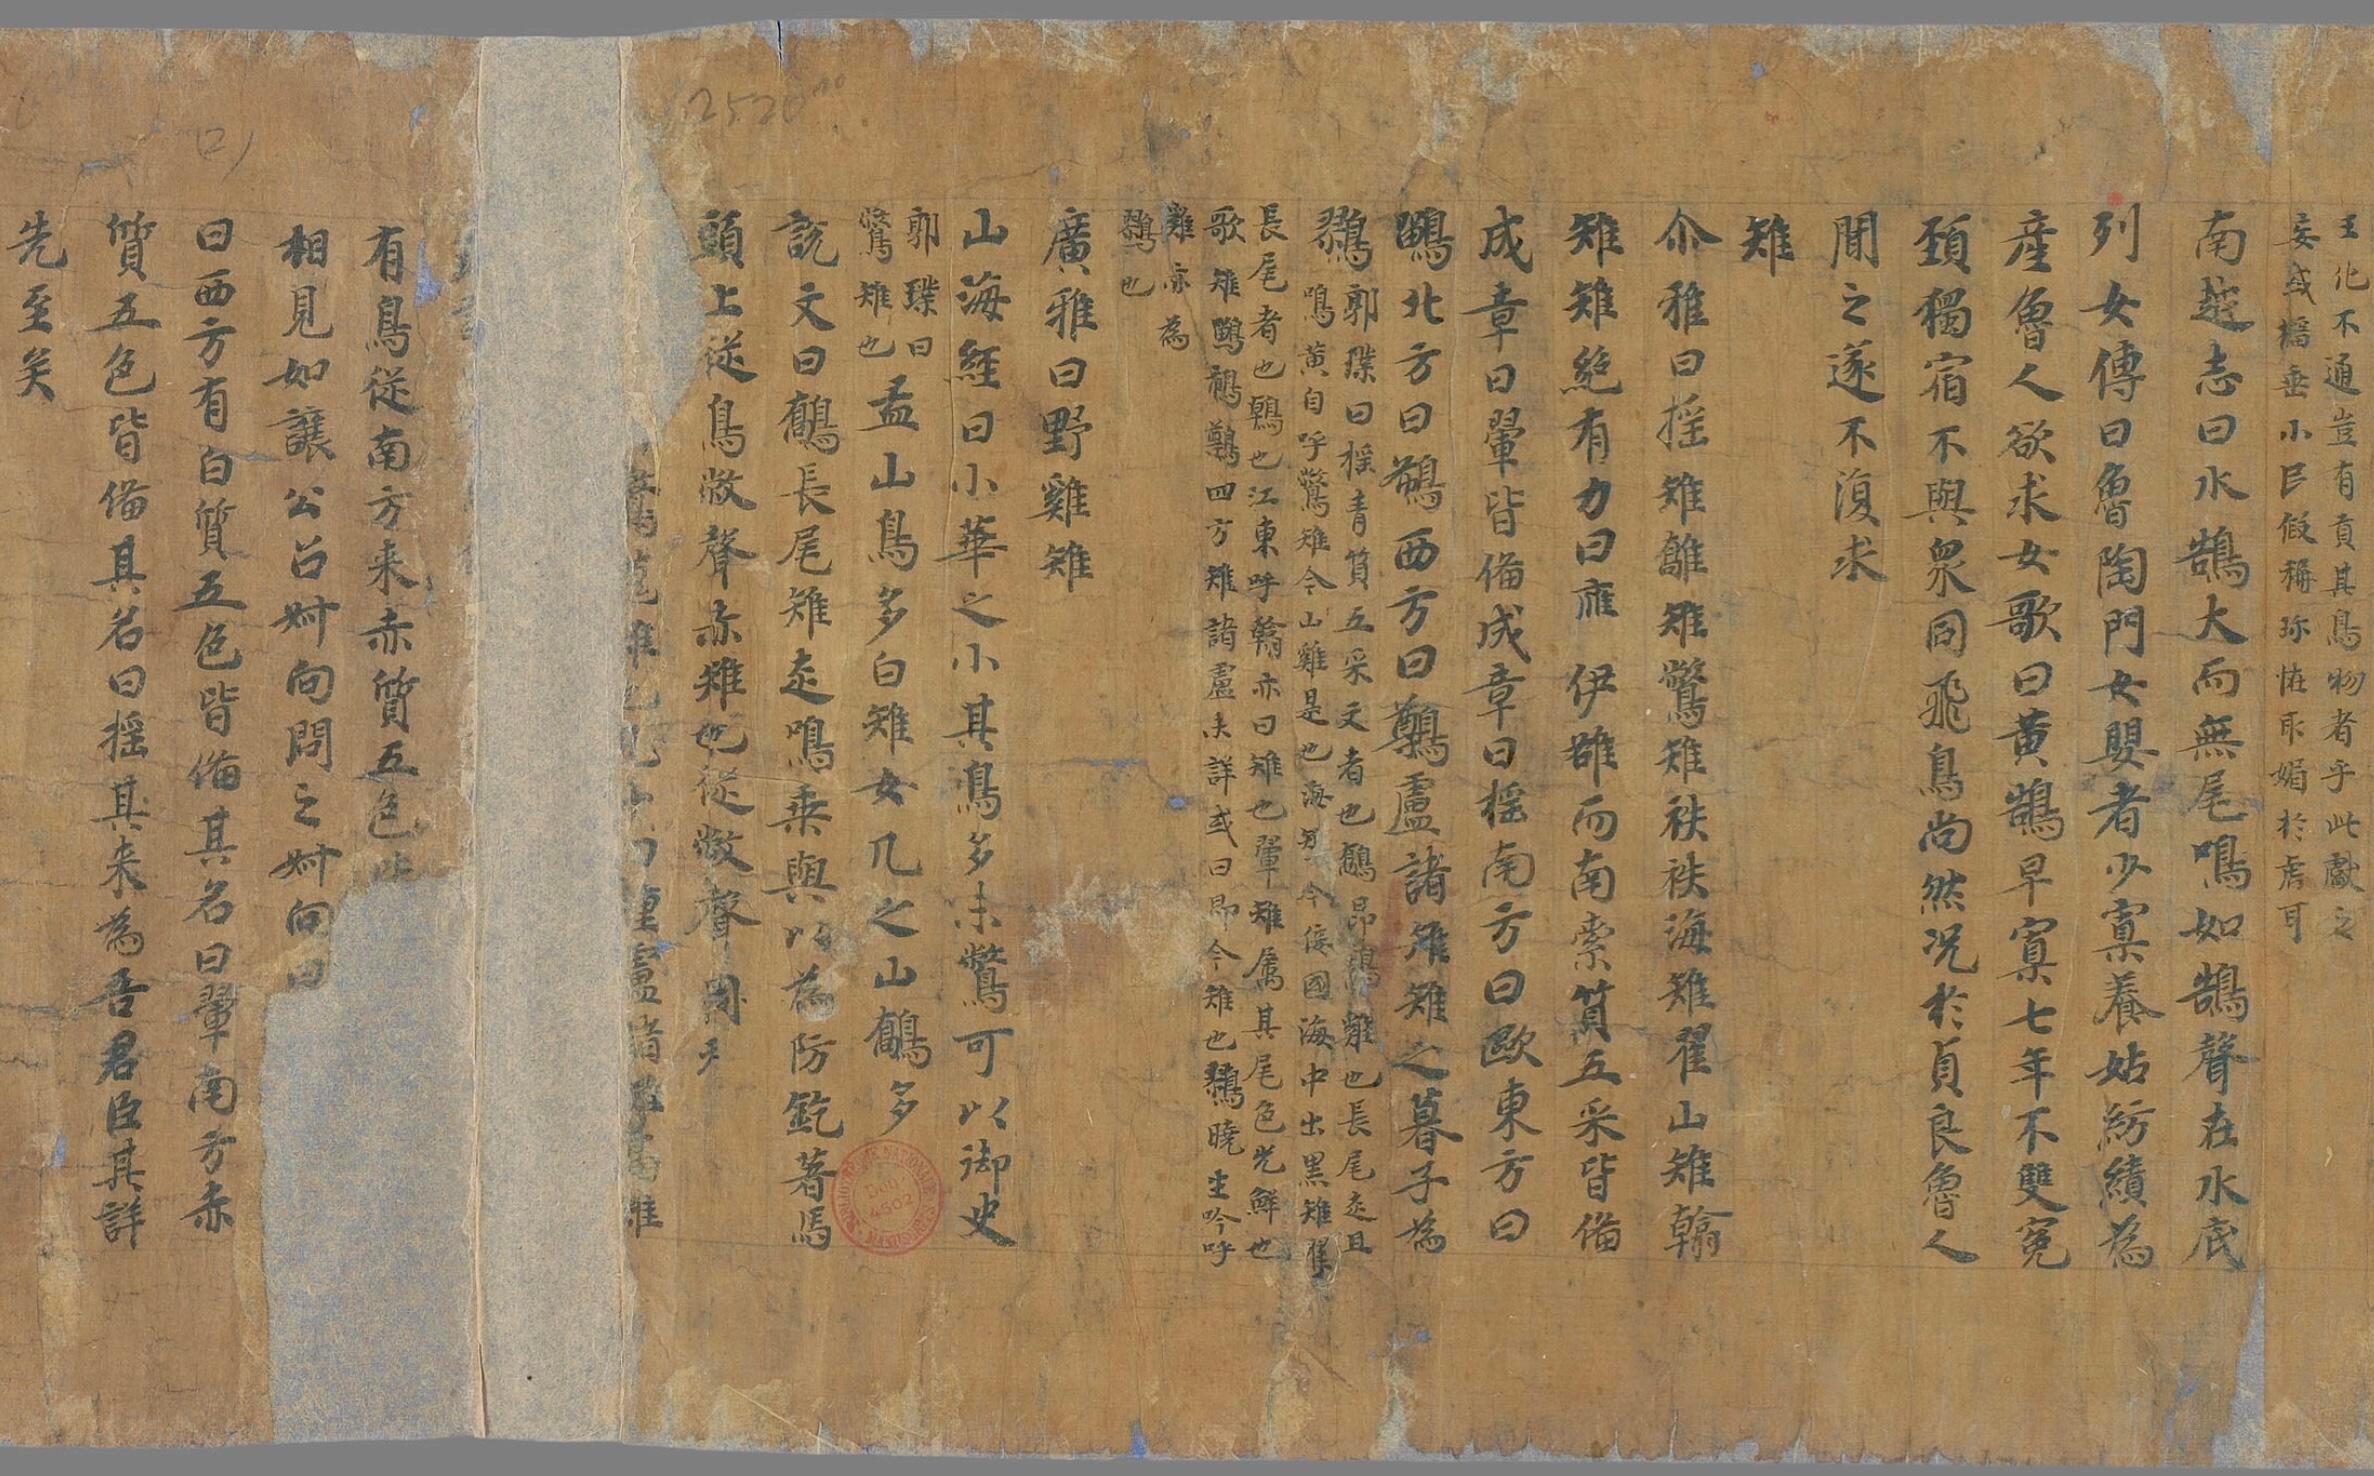 王化不通豈有貢其鳥物者乎此獻之
妄或搖垂小臣假稱珍恠取媚於君耳
南越志曰水鵠大而無尾鳴如鵠聲在水底
列女傳曰魯陶門女嬰者少寡養姑紡績為
產魯人欲求女歌曰黃鵠早寡七年不雙宛
頸獨宿不與眾同飛鳥尚然況於貞良魯人
聞之遂不復求
雉
尒雅曰搖雉鷂雉鷩雉秩秩海雉翟山雉鶾
雉雉絕有力曰奮 伊雒而南素質五采皆備
成章曰翬皆備成章曰搖南方曰𪇆東方曰
鶅北方曰鵗西方曰鷷盧諸雉雉之暮子為
鷚郭璞曰搖青質五采文者也鷂即鷮雞也長尾走且
鳴黃自呼鷩雉今山雞是也海雉今倭國海中出黑雉隼
長尾者也鶾也江東呼鶾亦曰雉也翬雉屬其尾色光鮮也
歌雉鶅鵗鷷四方雉諸盧未詳或曰即今雉也鷚曉生吟呼
雞亦為
鷚也
廣雅曰野雞雉
山海經曰小華之小其鳥多赤鷩可以御火
郭璞曰
鷩雉也
孟山鳥多白雉女几之山鷮多
說文曰鷮長尾雉走鳴乘輿以為防釳著馬
頭上從鳥敝聲赤雉也從敝聲周
有鳥從南方来赤質五色
相見如讓公召叔向問之叔向曰
曰西方有白質五色皆備其名曰翬南方赤
質五色皆備其名曰搖其来為吾君臣其詳
先至矣